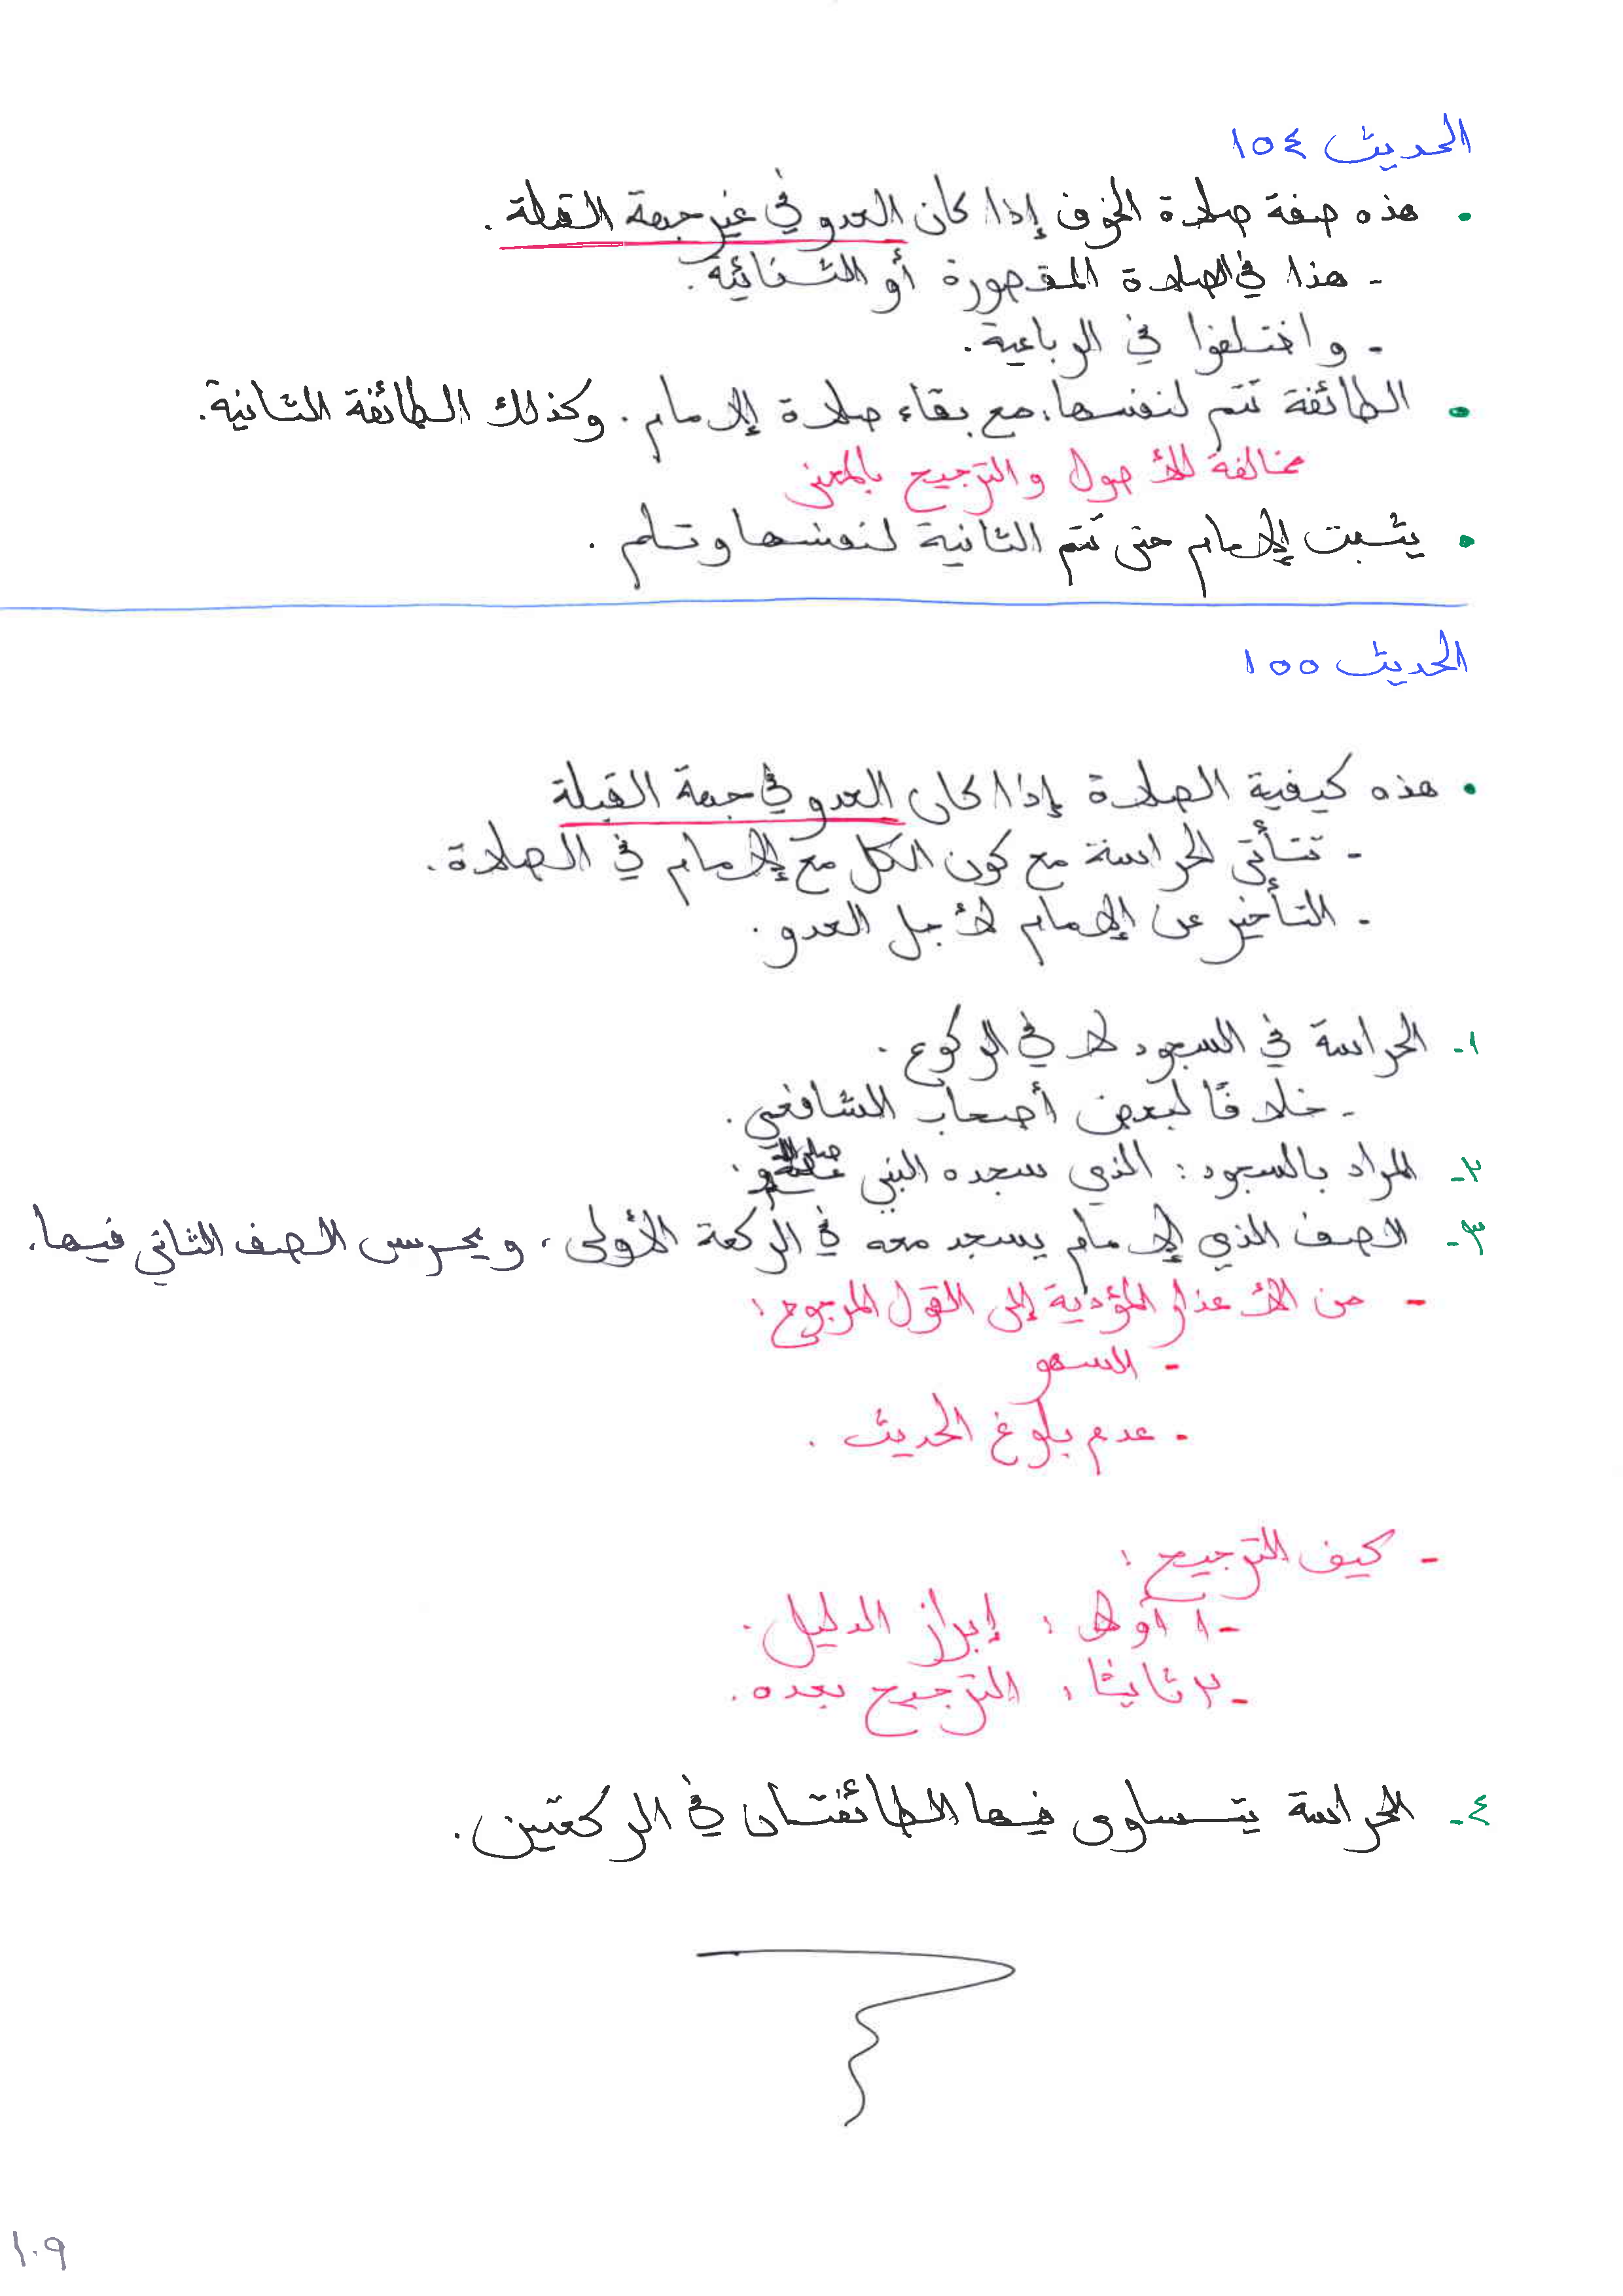 الحديث ١٥٤
• هذه صفة صلاة الخوف إذا كان العدو في غير جهة القبلة.
- هذا في الصلاة المقصورة أو الثنائية.
- واختلفوا في الرباعية.
• الطائفة تتم لنفسها، مع بقاء صلاة الإمام. وكذلك الطائفة الثانية.
مخالفة للأصول والترجيح بالمعنى
• يثبت الإمام حتى تتم الثانية لنفسها وتسلم.
الحديث ١٥٥
• هذه كيفية الصلاة إذا كان العدو في جهة القبلة
- تتأتى الحراسة مع كون الكل مع الإمام في الصلاة.
- التأخير عن الإمام لأجل العدو.
١- الحراسة في السجود لا في الركوع.
- خلافًا لبعض أصحاب الشافعي.
٢- المراد بالسجود: الذي سجده النبي صلى الله عليه وسلم.
٣- الصف الذي الإمام يسجد معه في الركعة الأولى، ويحرس الصف الثاني فيها.
- من الأعذار المؤدية إلى القول المرجوح:
- السهو
- عدم بلوغ الحديث.
- كيف الترجيح:
-١ أولا: إبراز الدليل.
-٢ ثانيا: الترجيح بعده.
٤- الحراسة يتساوى فيها الطائفتان في الركعتين.
١٠٩